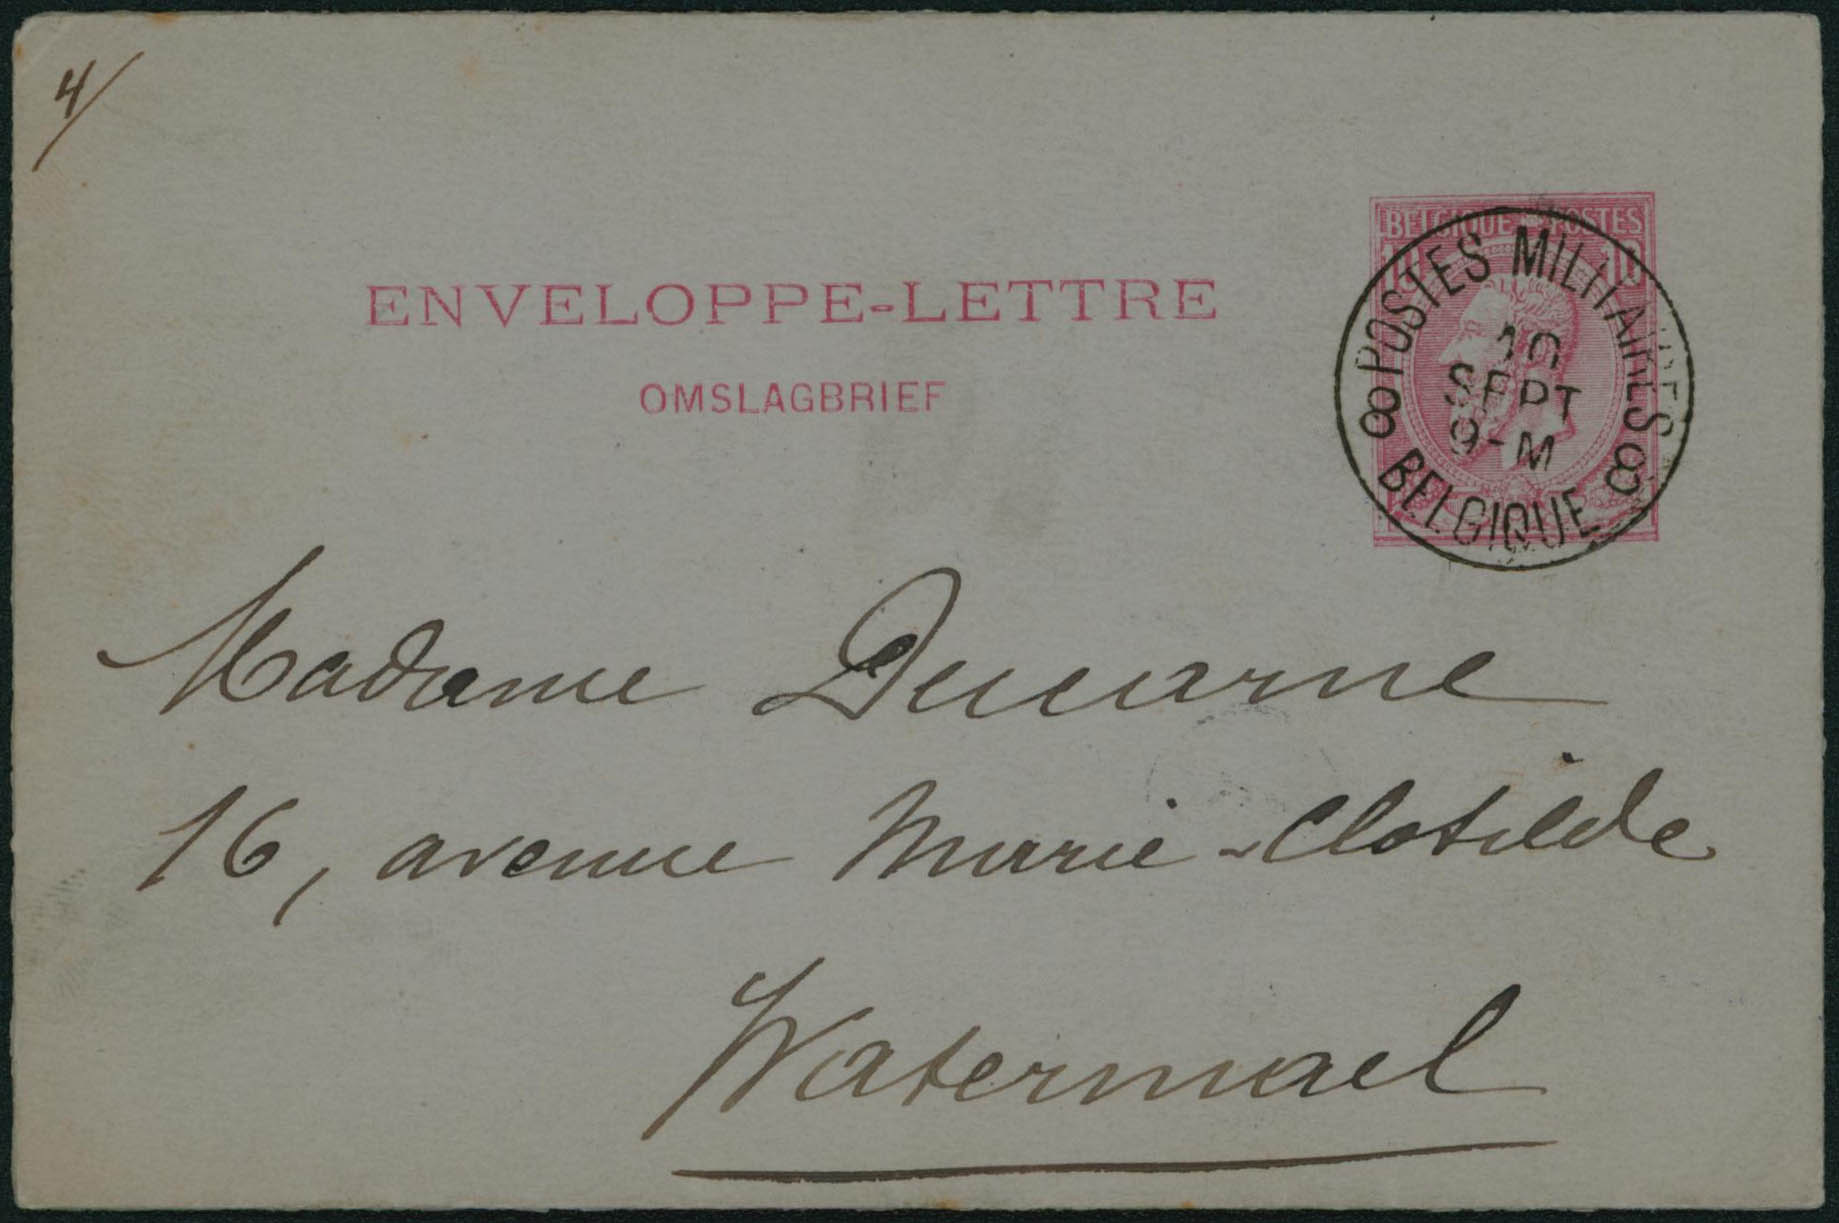 4/
BELGIQUE POSTES
10 10
ENVELOPPE-LETTRE
OMSLAGBRIEF
POSTES MILITAIRES
10
SEPT
9-M
8 BELGIQUE 8
Madame Ducarne
16, avenue Marie-Clotilde
Watermael